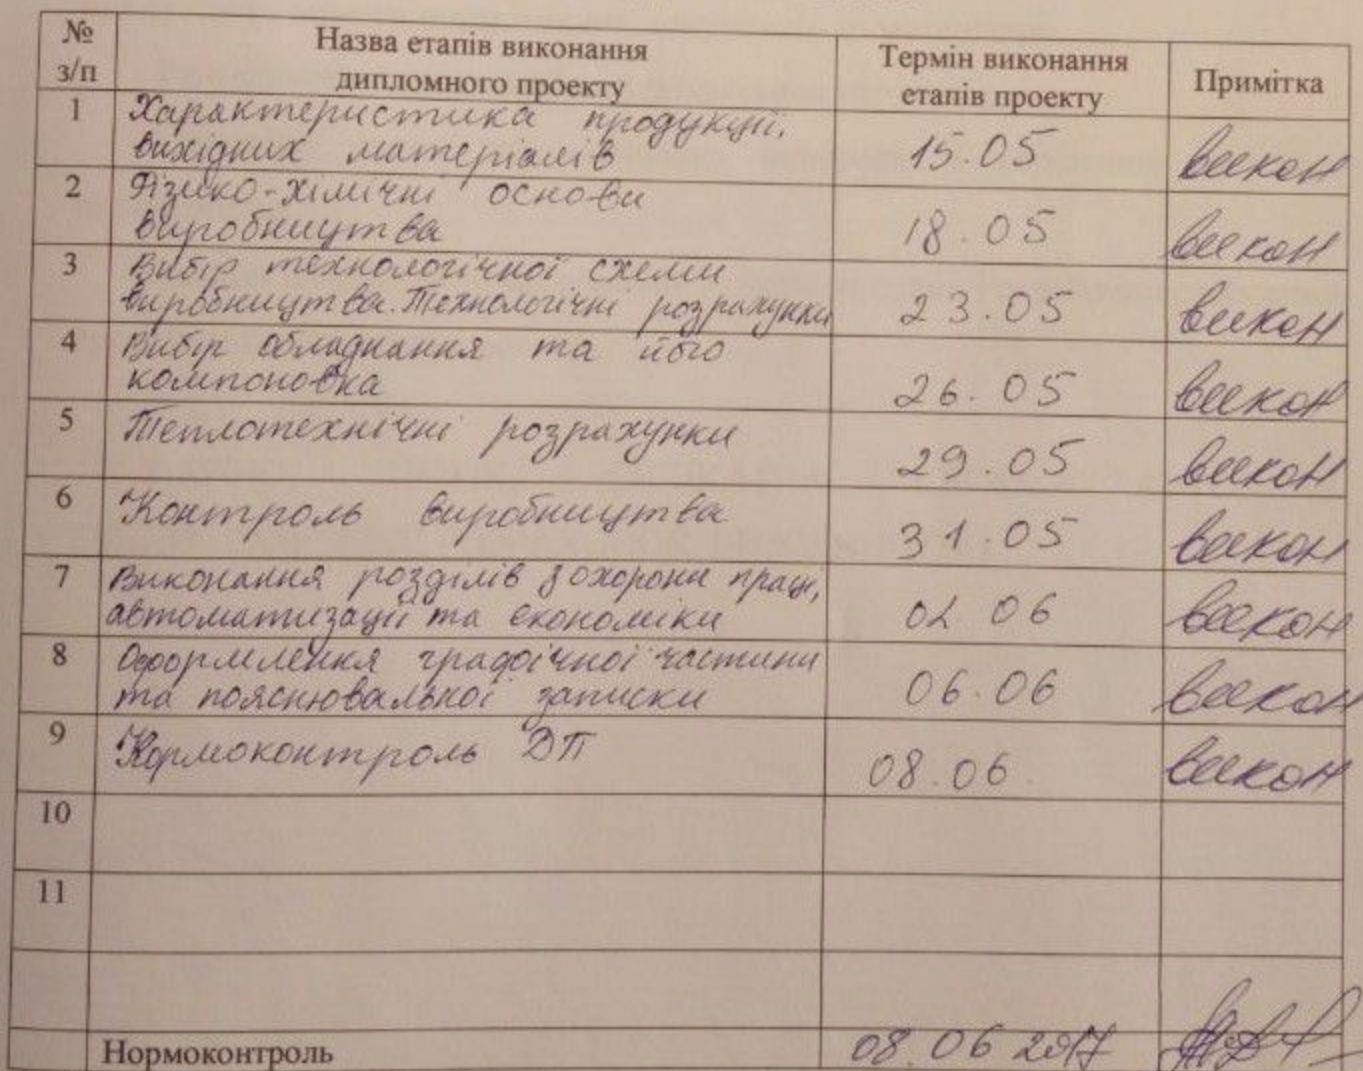 № з/п
Назва етапів виконання
дипломного проекту
Термін виконання
етапів проекту
Примітка
1
Характеристика продукції,
вихідних матеріалів
15.05
викон
2
Фізико-хімічні основи
виробництва
18.05
викон
3
Вибір технологічної схеми
виробництва. Технологічні розрахунки
23.05
викон
4
Вибір обладнання та його
компоновка
26.05
викон
5
Теплотехнічні розрахунки
29.05
викон
6
Контроль виробництва
31.05
викон
7
Виконання розділів з охорони праці,
автоматизації та економіки
02 06
викон
8
Оформлення графічної частини
та пояснювальної записки
06.06
викон
9
Нормоконтроль ДП
08.06.
викон
10
11
Нормоконтроль
08.06 2017